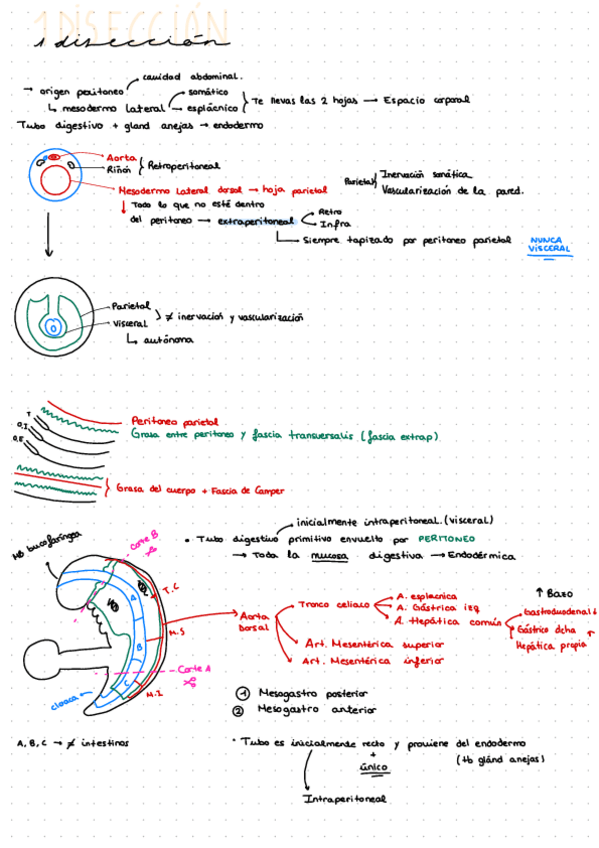 1 DISECCIÓN
1 disección
cavidad abdominal.
→ origen peritoneo
somático
↳ mesodermo lateral → esplácnico } Te llevas las 2 hojas → Espacio corporal
Tubo digestivo + gland anejas → endodermo
Aorta
Riñón } Retroperitoneal
Mesodermo Lateral dorsal → hoja parietal
Parietal { Inervación somática
Vascularización de la pared.
↓ Todo lo que no esté dentro
del peritoneo → extraperitoneal
Retro
Infra
↳ Siempre tapizado por peritoneo parietal
NUNCA
VISCERAL
Parietal
Visceral } ≠ inervación y vascularización
↳ autónoma
T
O.I
O.E
Peritoneo parietal
Grasa entre peritoneo y fascia transversalis (fascia extrap)
} Grasa del cuerpo + Fascia de Camper
inicialmente intraperitoneal. (visceral)
• Tubo digestivo primitivo envuelto por PERITONEO
→ Toda la mucosa digestiva → Endodérmica
MB bucofaríngea
Corte B
T.C
A
M.S
B
Corte A
C
M.I
cloaca
Aorta
Dorsal
Tronco celiaco
A. esplacnica
A. Gástrica izq
A. Hepática común
↑ Bazo
Gastroduodenal ↓
Gástrica dcha
Hepática propia
Art. Mesentérica superior
Art. Mesentérica inferior
① Mesogastro posterior
② Mesogastro anterior
A, B, C → ≠ intestinos
• Tubo es inicialmente recto y proviene del endodermo
+
único
(tb glánd anejas)
Intraperitoneal